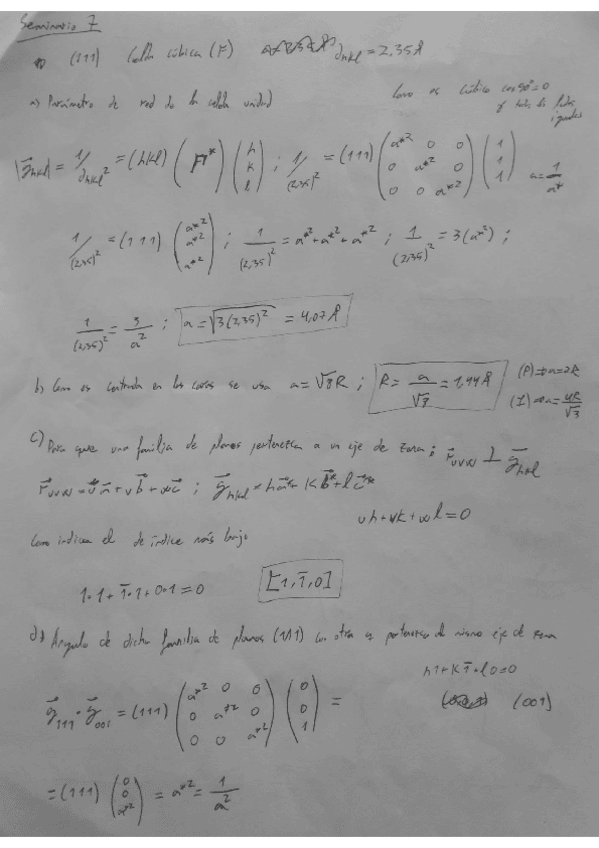 Seminario 7
(111) Celda cúbica (F) d_hkl = 2,35 Å
a) Parámetro de red de la celda unidad
Como es cúbico cos 90° = 0
y todos los lados
iguales
|g⃗_hkl| = 1/d_hkl² = (hkl) (M*) (h k l) ; 1/(2,35)² = (111) (a*² 0 0 / 0 a*² 0 / 0 0 a*²) (1 1 1) a = 1/a*
1/(2,35)² = (111) (a*² a*² a*²) ; 1/(2,35)² = a*² + a*² + a*² ; 1/(2,35)² = 3(a*²) ;
1/(2,35)² = 3/a² ; a = √3(2,35)² = 4,07 Å
b) Como es centrada en las caras se usa a = √8 R ; R = a/√8 = 1,44 Å (P) ⇒ a = 2R
(I) ⇒ a = 4R/√3
c) Para que una familia de planos pertenezca a un eje de zona : r⃗_uvw ⊥ g⃗_hkl
r⃗_uvw = u a⃗ + v b⃗ + w c⃗ ; g⃗_hkl = h a⃗* + k b⃗* + l c⃗*
uh + vk + wl = 0
Como indica el de índice más bajo
1·1 + 1̄·1 + 0·1 = 0 [1, 1̄, 0]
d) Ángulo de dicha familia de planos (111) con otra q pertenezca al mismo eje de zona
h1 + k1̄ + l0 = 0
g⃗_111 · g⃗_001 = (111) (a*² 0 0 / 0 a*² 0 / 0 0 a*²) (0 0 1) = (001)
= (111) (0 0 a*²) = a*² = 1/a²